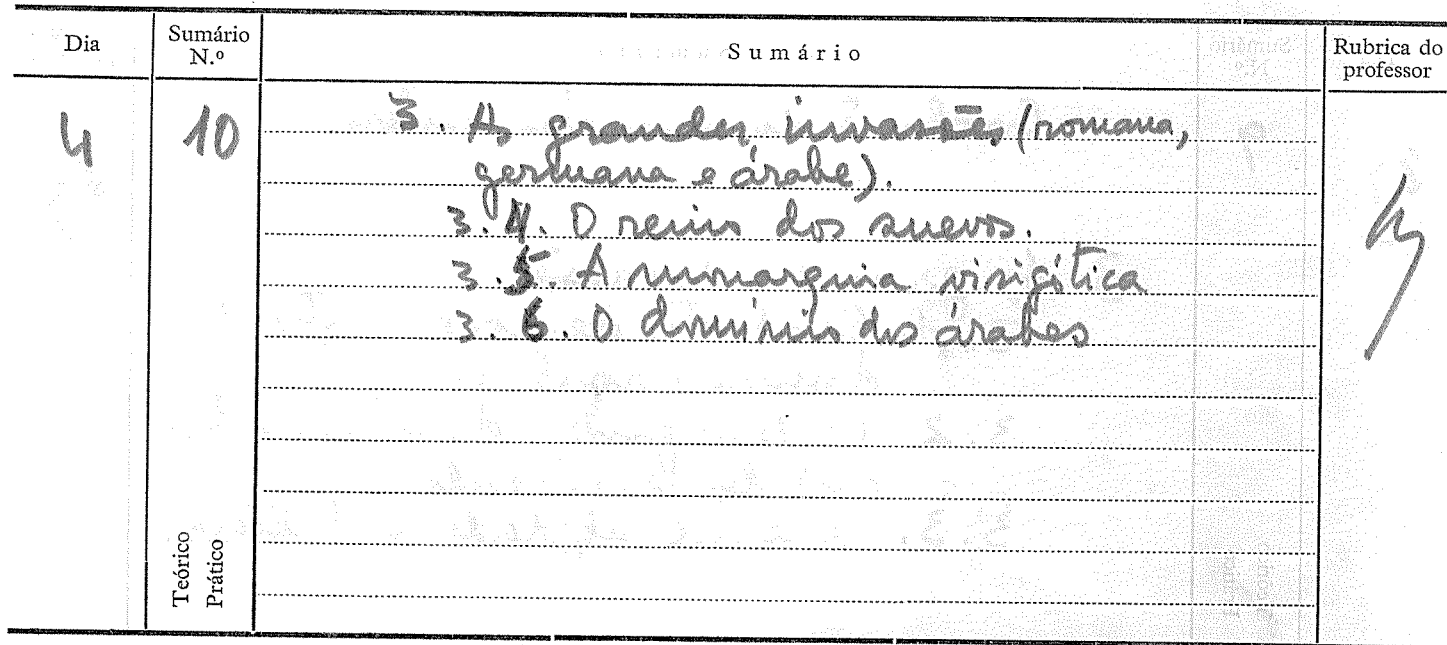 Dia
Sumário
N.º
Sumário
Rubrica do
professor
4
10
3. As grandes invasões (romana,
germana e árabe).
3.4. O reino dos suevos.
3.5. A monarquia visigótica
3.6. O domínio dos árabes
Teórico
Prático